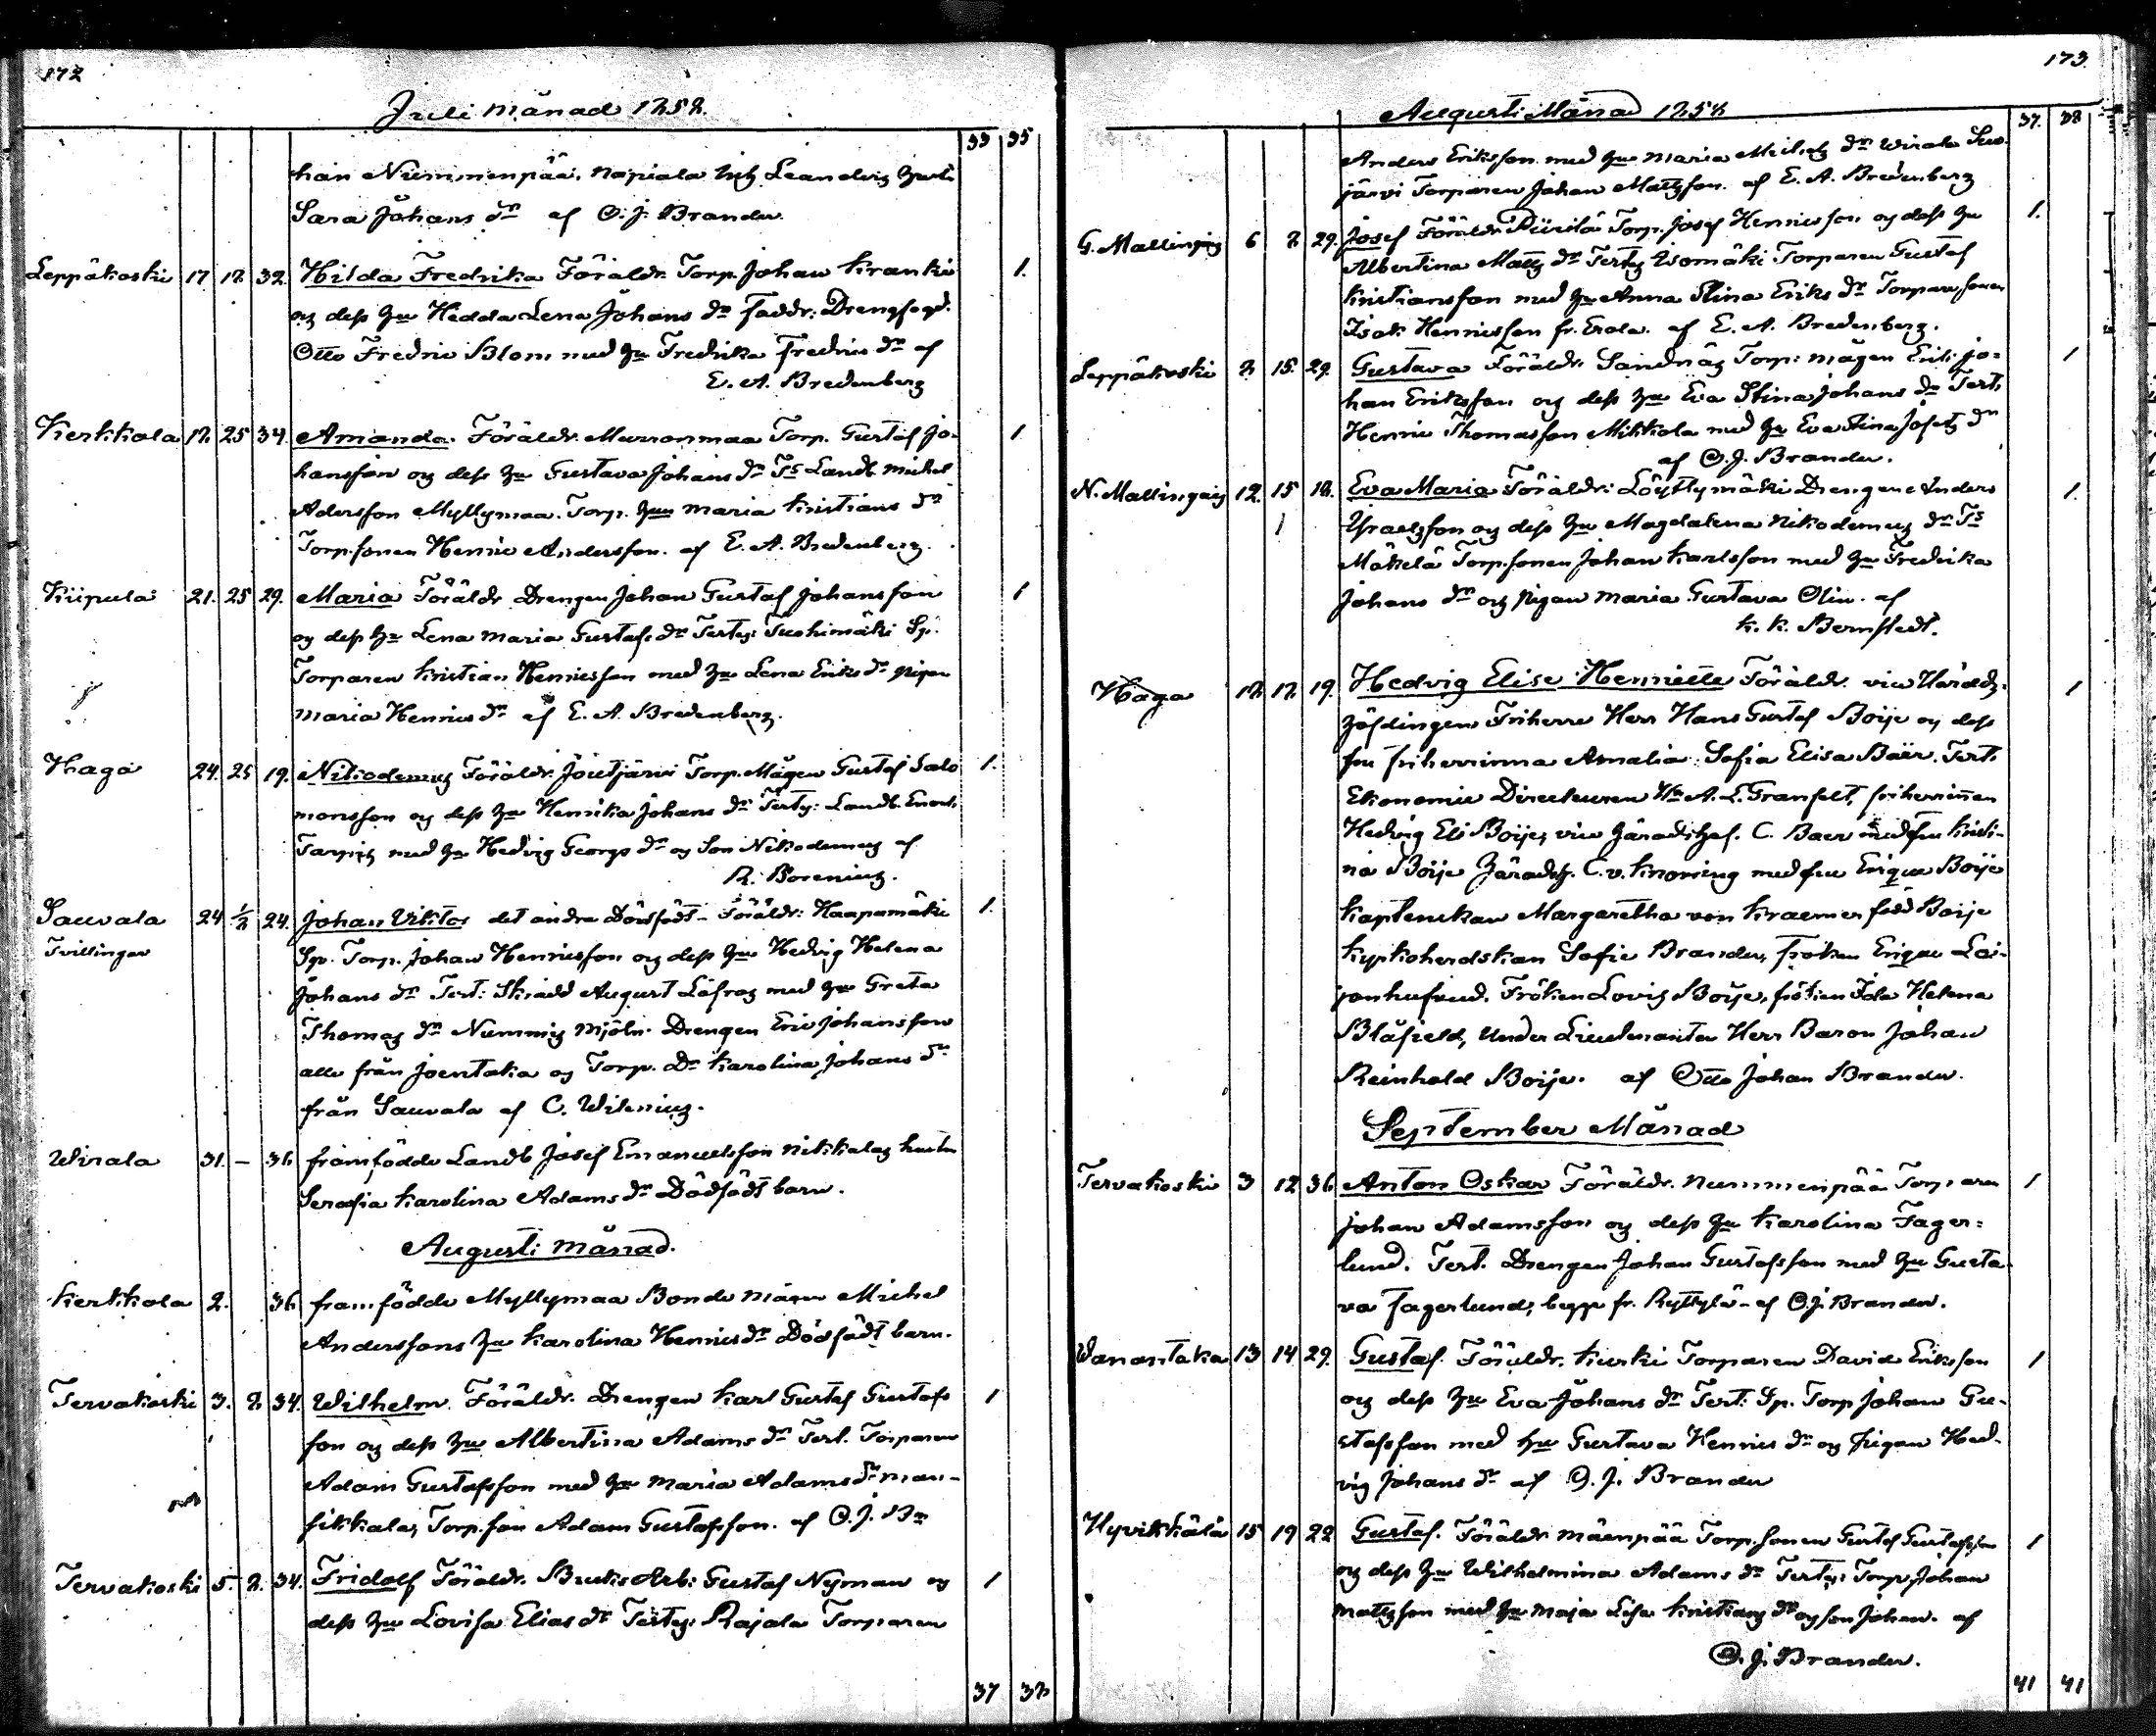 172
Juli månad 1858.
33 35
han Nummenpää, Napiala Leanders hustr.
Sara Johans dr af O. J. Brander.
Leppäkoski 17 18 32. Hilda Fredrika Föräldr. Torp. Johan Kranki 1.
og dess hu Hedda Lena Johans dr Faddr: Drengfogd.
Otto Fredric Blom med hu Fredrika Fredrics dr af
E. A. Bredenberg
Kerkkola 18 25 34. Amanda. Föräldr. Murronmaa Torp. Gustaf Jo- 1.
hansson og dess hu Gustava Johans dr Ts Landb. Michel
Adersson Myllymaa. Torp. hun Maria Kristians dr
Torp.sonen Henric Andersson. af E. A. Bredenberg.
Kiipula 21. 25 29. Maria Föräldr Drengen Johan Gustaf Johansson 1
og dess hu Lena Maria Gustafs dr Testes: Tuohimäki Sp.
Torparen Kristian Henricsson med hu Lena Eriks dr pigan
Maria Henrics dr af E. A. Bredenberg.
Haga 24. 25 19. Nikodemus Föräldr. Joutjärvi Torp. Mågen Gustaf Salo 1.
monsson og dess hu Henrika Johans dr Testes: Landb.
med hu Hedvig Georgs dr og Son Nikodemus af
R. Borenius.
Sauvala 24 ½ 24. Johan Viktor det andra Dödfödt - Föräldr: Haapamäki 1.
Tvillingar Sp. Torp. Johan Henricsson og dess hu Hedvig Helena
Johans dr Test: Skrädd August Löfros med hu Greta
Thomas dr Nummis Mjöln. Drengen Eric Johansson
alla från Joentaka og Torp. Dr Karolina Johans dr
från Sauvala af C. Wilenius.
Wirala 31. - 36 framfödde Landb Josef Emanuelsson Nikkalas hustru
Serafia Karolina Adams dr Dödfödt barn.
Augusti månad.
Kerkkola 2. 36 framfödde Myllymaa Bonde mågen Michel
Anderssons hu Karolina Henrics dr Dödfödt barn.
Tervakoski 3. 8 34. Wilhelm. Föräldr. Drengen Karl Gustaf Gustafs 1
son og dess hu Albertina Adams dr Test. Torparen
Adam Gustafsson med hu Maria Adams dr Man-
sikkala, Torp.son Adam Gustafsson. af O. J. Br
Tervakoski 5. 8. 34. Fridolf Föräldr. Bruks Arb: Gustaf Nyman og 1
dess hu Lovisa Elias dr Testes: Rajala Torparen
37 38
173.
Augusti Månad 1858
37. 38
Anders Eriksson med hu Maria Michels dr Wirala Suo-
järvi Torparen Johan Mattsson. af E. A. Bredenberg
G. Mallinging 6 8 29. Josef Föräldr. Torp. Josef Henricsson og dess hu 1.
Albertina Matts dr Testes Isomäki Torparen Gustaf
Kristiansson med hu Anna Stina Eriks dr Torpare sonen
Isak Henricsson fr. Erola. af E. A. Bredenberg.
Leppäkoski 8 15. 29. Gustava Föräldr. Sandnäs Torp: mågen Erik Jo= 1
han Eriksson og dess hu Eva Stina Johans dr Test.
Henric Thomasson Mikkola med hu Eva Stina Josefs dr
af O. J. Brander.
N. Mallinging 12 15 18. Eva Maria Föräldr: Löyttymäki Drengen Anders 1.
Israelsson og dess hu Magdalena Nikodemus dr Ts
Mäkelä Torp.sonen Johan Karlsson med hu Fredrika
Johans dr og pigan Maria Gustava Olin. af
K. K. Bernstedt.
Haga 12 17 19. Hedvig Elise Henriette Föräldr. vice Härads- 1
höfdingen Friherre Herr Hans Gustaf Boije og dess
fru friherrinna Amalia Sofia Elisa Bäer. Test.
Ekonomie Directeuren Hr A. L. Granfelt, friherrinnan
Hedvig Eli Boije, vice häradshöf. C. Baer med fru Kristi-
na Boije Häradsh. C. v. Knorring med fru Erique Boije
Kaptenskan Margaretha von Kraemer född Boije
Kyrkoherdskan Sofie Brander, fröken Erique Lai-
jonhufvud. Fröken Lovis Boije, fröken Ida Helena
Blåfield, Under Lieutenanten Herr Baron Johan
Reinhold Boije. af Otto Johan Brander.
September Månad
Tervakoski 3 12 36 Anton Oskar Föräldr. Nummenpää Torparen 1
Johan Adamsson og dess hu Karolina Fager=
lund. Test. Drengen Johan Gustafsson med hu Gusta
va Fagerlund, begge fr. Ryttylä - af O. J. Brander.
Wanantaka 13 14 29. Gustaf. Föräldr. Kurki Torparen David Eriksson 1
og dess hu Eva Johans dr Test: Sp. Torp Johan Gu-
stafsson med hu Gustava Henrics dr og pigan Hed-
vig Johans dr af O. J. Brander
Hyvikkälä 15 19 22 Gustaf. Föräldr Mäenpää Torp.sonen Gustaf Gustafsson 1
og dess hu Wilhelmina Adams dr Testes: Torp. Johan
Mattsson med hu Maja Lisa Kristians dr og son Johan. af
O. J. Brander.
41 41